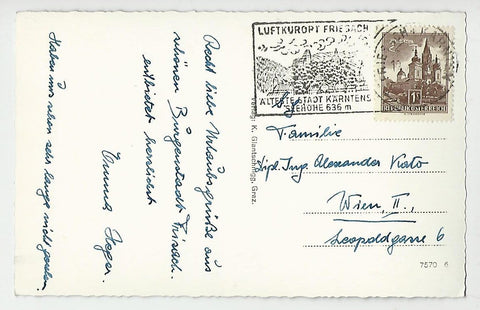 Recht liebe Urlaubsgrüße aus
schönen Burgenstadt Friesach.
entbietet herzlichst
Emma Hager.
Haben uns schon sehr lange nicht gesehen.
Verlag: K. Glantschnigg, Graz.
LUFTKURORT FRIESACH
ÄLTESTE STADT KÄRNTENS
SEEHÖHE 636 m
REPUBLIK ÖSTERREICH
Familie
Dipl. Ing. Alexander Kato
Wien, II.,
Leopoldgasse 6
7570 6